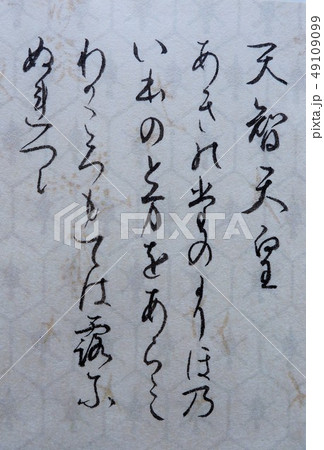 天智天皇
あきの堂のかりほ乃
い本のと万をあらみ
わかころもては露尓
ぬ連つゝ
PIXTA
pixta.jp - 49109099